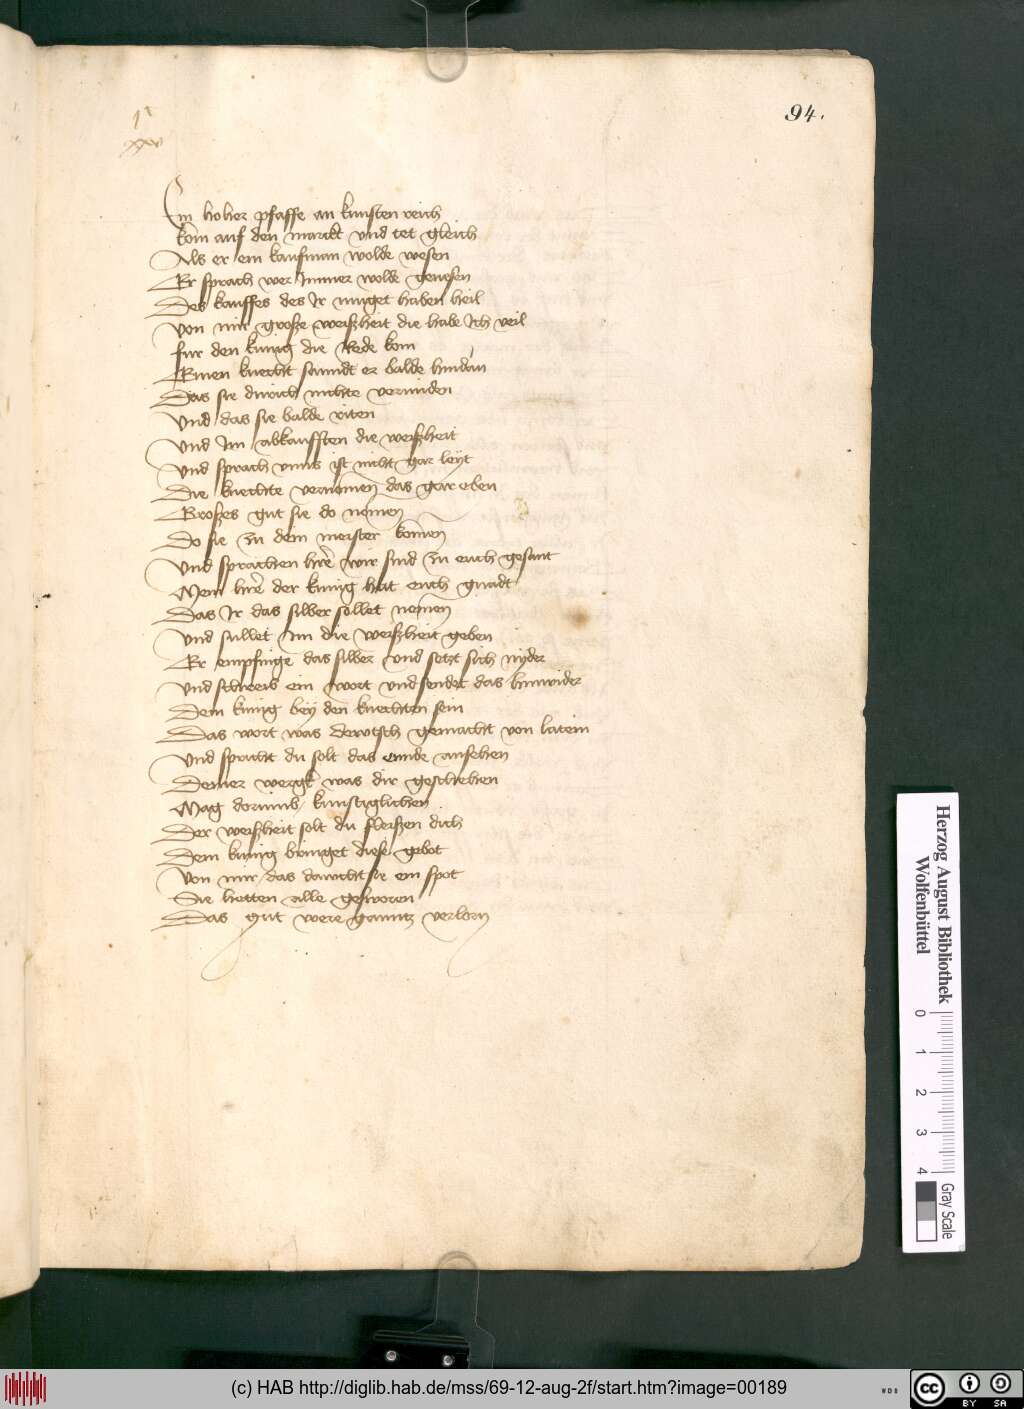 94.
xxv
Ein hoher pfaffe an kunsten reich
kom auf den marckt vnd tet gleich
Als er ein kaufman wolde wesen
Er sprach wer Immer wolde genesen
Des kauffes des Ir muget haben heil
von mir große weißheit die habe Ich veil
fur den kunig die Rede kom
Einen knecht sanndt er balde hindan
Das sie durch nichte vermiden
vnd das sie balde riten
vnd Im abkaufften die weißheit
vnd sprach vnns ist nicht gar leyt
Die knechte vernomen das gar eben
Großes gut sie do nomen
Do sie zu dem meister komen
vnd sprachen hre wir sind zu euch gesant
Mein hre der kunig hat euch gnadt
Das Ir das silber sollet nemen
vnd sullet Im die weißheit geben
Er empfinge das silber vnd setzt sich nyder
vnd schreib ein wort vnd sendet das hinwider
Dem kunig bey den knechten sein
Das wort was dewtsch gemacht von latein
vnd spricht du solt das ennde ansehen
Deiner wergk was dir geschehen
Mag dorumb kunftiglichen
Der weißheit solt du fleißen dich
Dem kunig bringet diese gebot
von mir das dawcht sie ein spot
Sie hetten alle gesworen
Das gut were ganntz verlorn
Herzog August Bibliothek
Wolfenbüttel
0 1 2 3 4
Gray Scale
(c) HAB http://diglib.hab.de/mss/69-12-aug-2f/start.htm?image=00189
WDB
cc BY SA